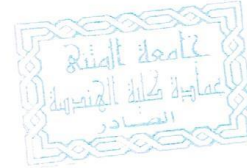 جامعة المثنى
عمادة كلية الهندسة
الصادر